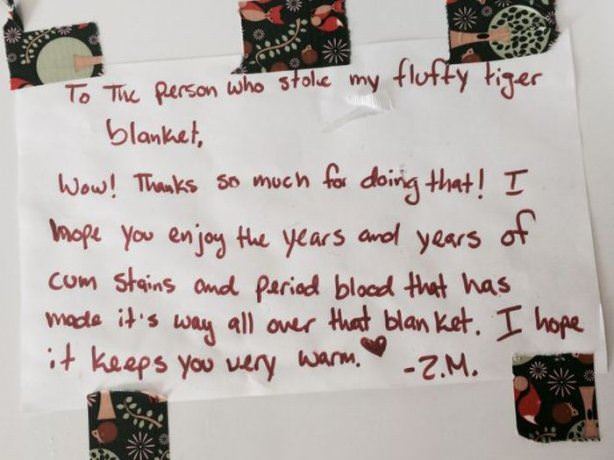 To The person who stole my fluffy tiger
blanket,
Wow! Thanks so much for doing that! I
hope you enjoy the years and years of
cum stains and period blood that has
made it's way all over that blanket. I hope
it keeps you very warm.♥ -Z.M.